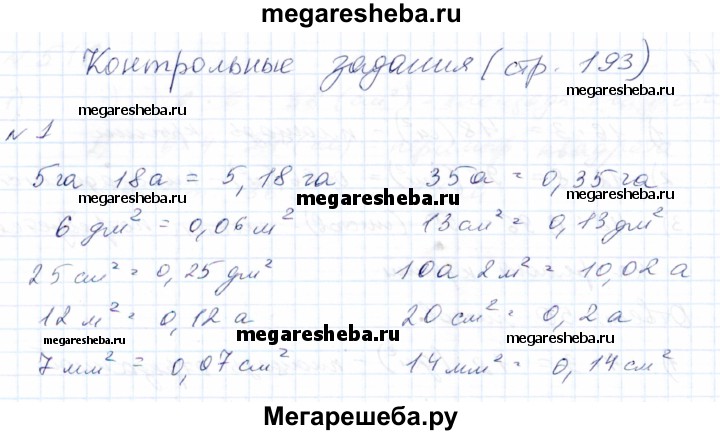 megaresheba.ru
Контрольные задания (стр. 193)
megaresheba.ru megaresheba.ru
№ 1
5га 18а = 5,18 га 35а = 0,35 га
megaresheba.ru megaresheba.ru
6 дм² = 0,06 м² 13 см² = 0,13 дм²
25 см² = 0,25 дм² 10а 2 м² = 10,02 а
12 м² = 0,12 а 20 см² = 0,2 а
megaresheba.ru megaresheba.ru megaresheba.ru
7 мм² = 0,07 см² 14 мм² = 0,14 см²
Мегарешеба.ру